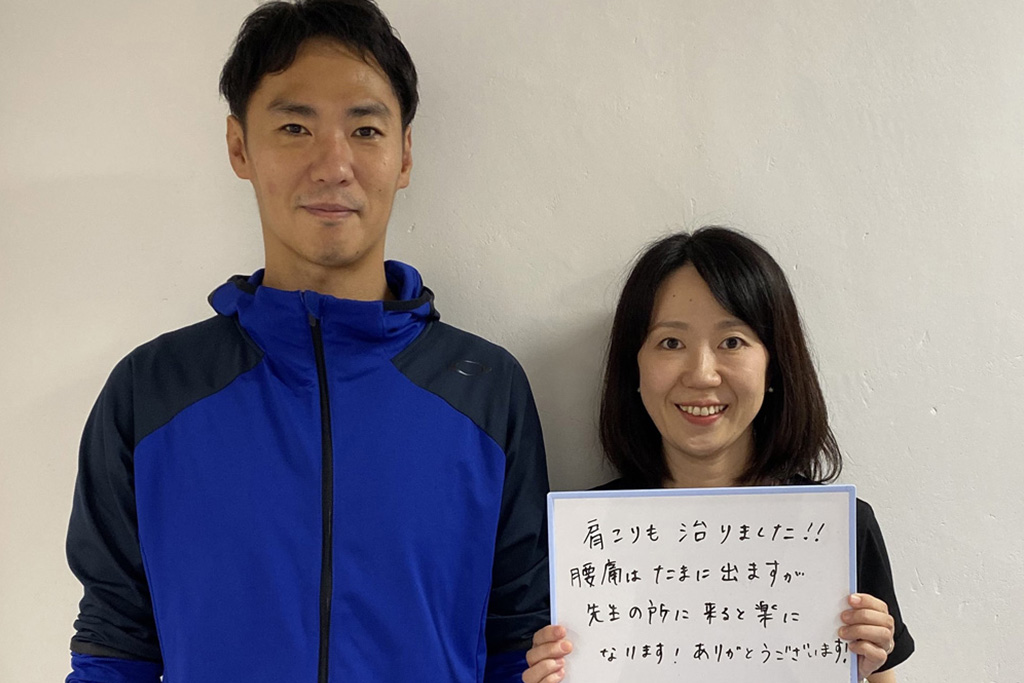 肩こりも治りました!!
腰痛はたまに出ますが
先生の所に来ると楽に
なります!ありがとうございます!